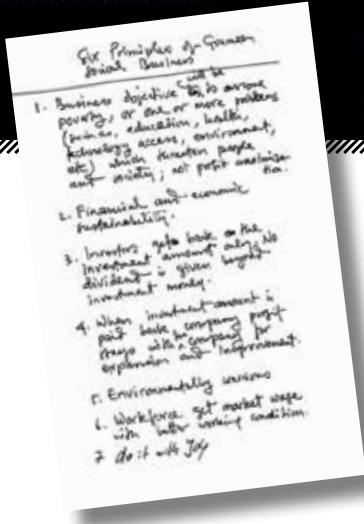 Six Principles of Grameen
Social Business
1. Business objective will be to overcome
poverty, or one or more problems
(such as, education, health,
technology access, environment,
etc) which threaten people
and society; not profit maximisa
tion.
2. Financial and economic
sustainability.
3. Investors get back the
investment amount only. No
dividend is given beyond
investment money.
4. When investment amount is
paid back company profit
stays with company for
expansion and improvement.
5. Environmentally conscious
6. Workforce get market wage
with better working condition.
7 do it with Joy